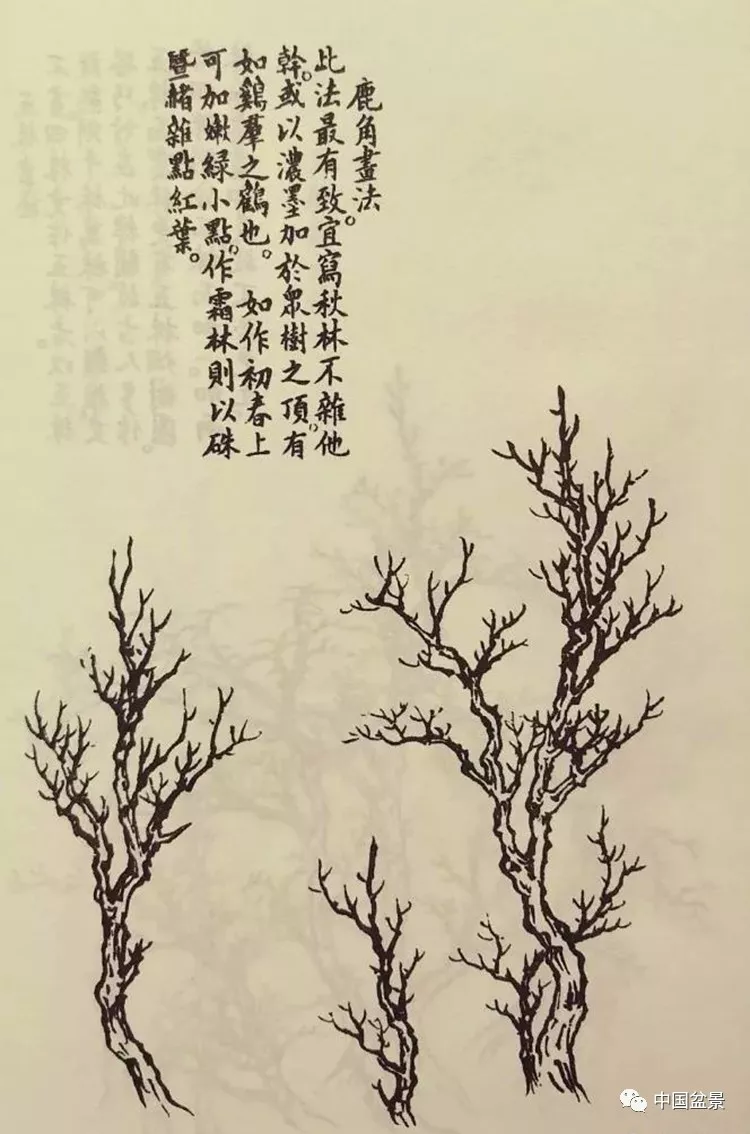 鹿角畫法
此法最有致。宜寫秋林不雜他
幹。或以濃墨加於眾樹之頂。有
如鷄羣之鶴也。如作初春上
可加嫩綠小點。作霜林則以硃
暨緒雜點紅葉。
中国盆景